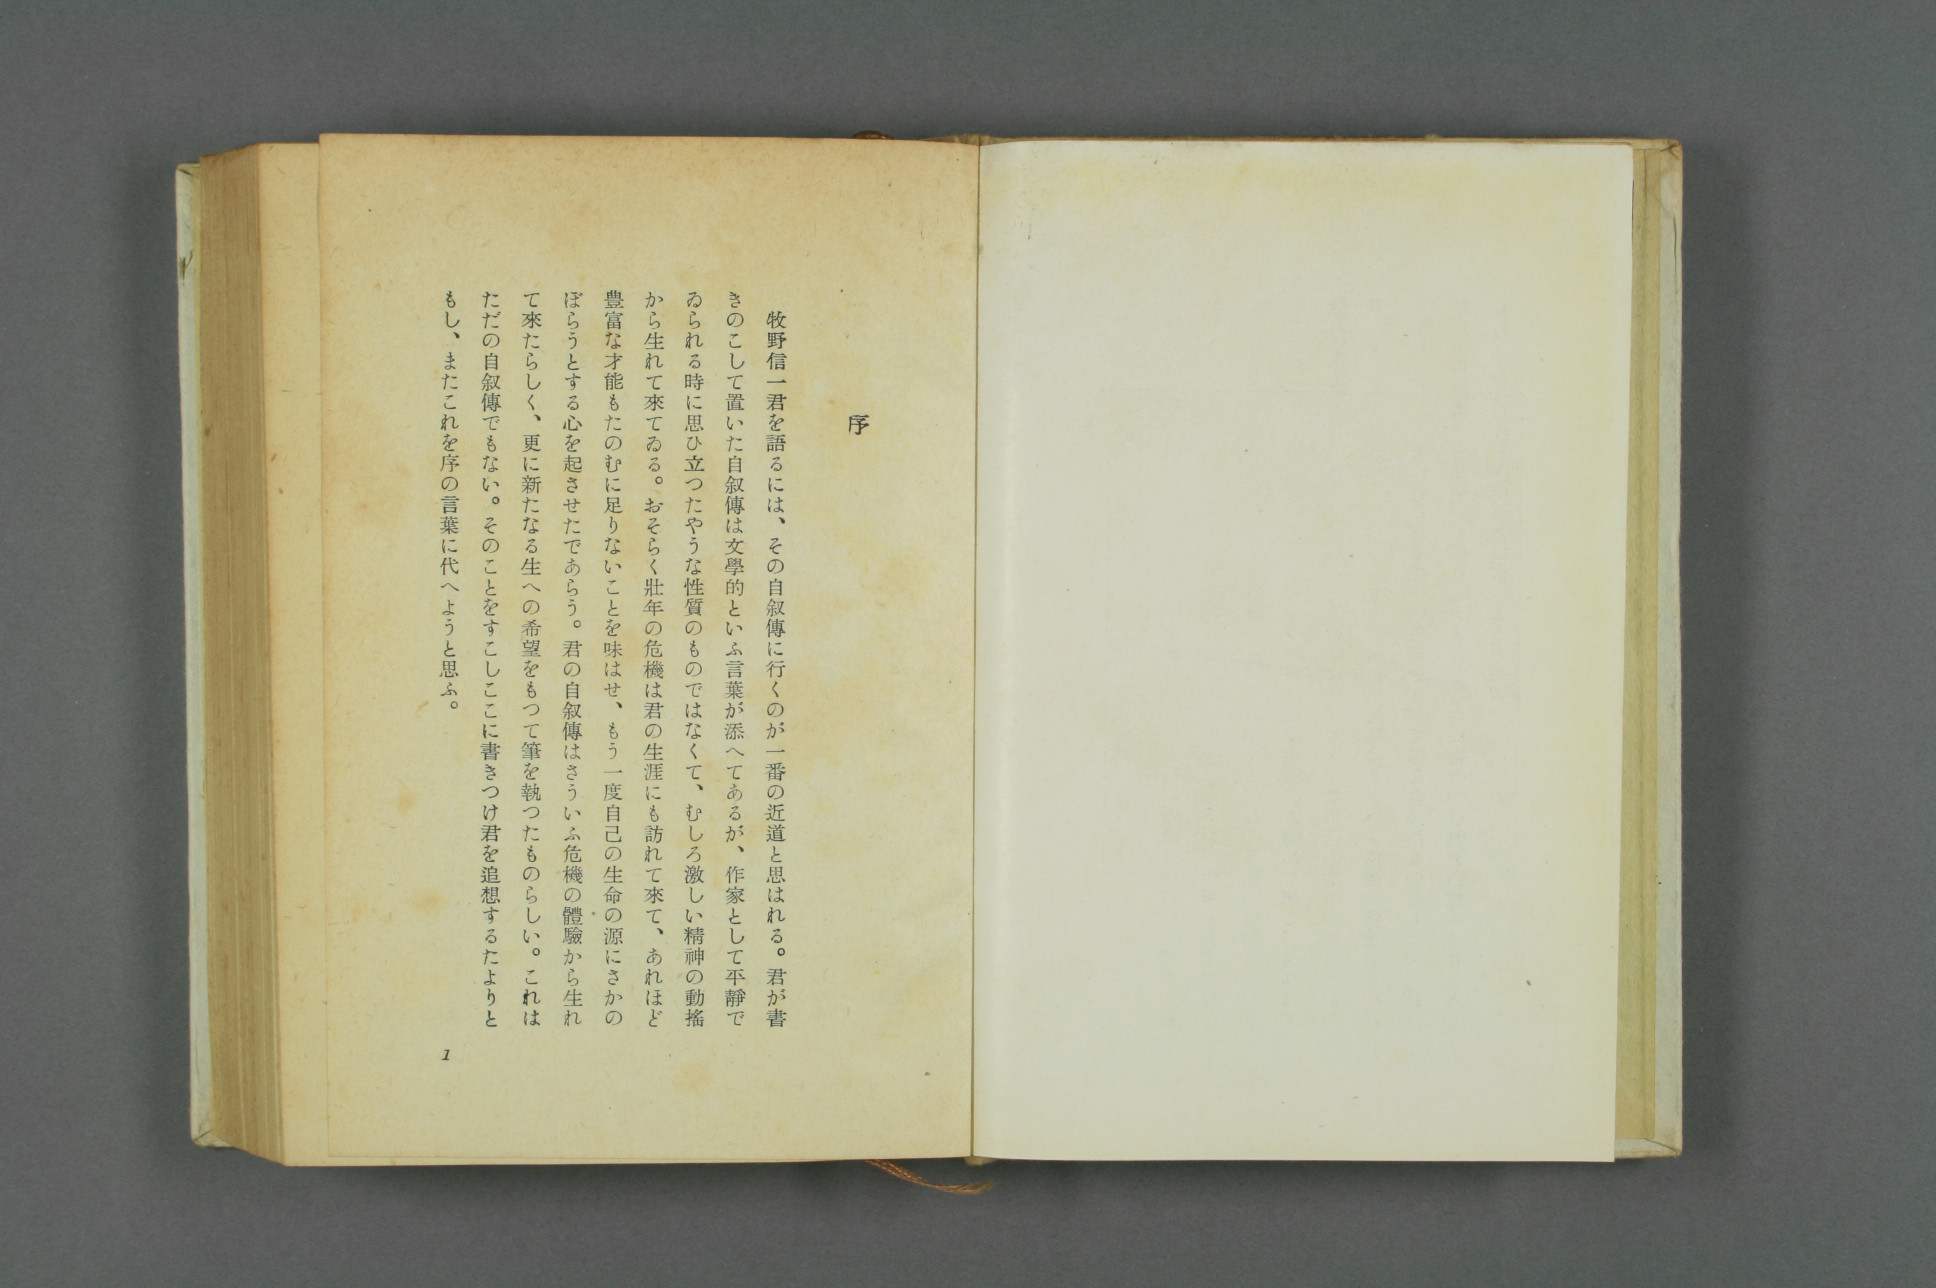 序
牧野信一君を語るには、その自叙傳に行くのが一番の近道と思はれる。君が書
きのこして置いた自叙傳は文學的といふ言葉が添へてあるが、作家として平靜で
ゐられる時に思ひ立つたやうな性質のものではなくて、むしろ激しい精神の動搖
から生れて來てゐる。おそらく壯年の危機は君の生涯にも訪れて來て、あれほど
豊富な才能もたのむに足りないことを味はせ、もう一度自己の生命の源にさかの
ぼらうとする心を起させたであらう。君の自叙傳はさういふ危機の體驗から生れ
て來たらしく、更に新たなる生への希望をもつて筆を執つたものらしい。これは
ただの自叙傳でもない。そのことをすこしここに書きつけ君を追想するたよりと
もし、またこれを序の言葉に代へようと思ふ。
1